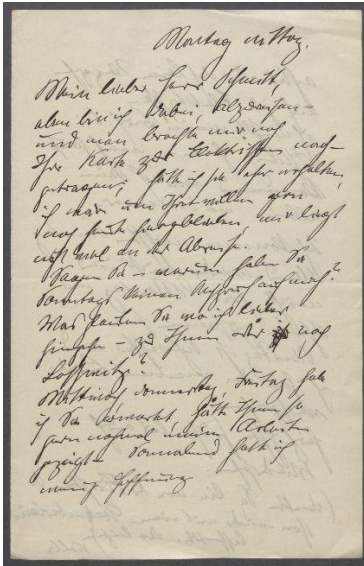 Montag Mittag.
Mein lieber Herr Schmitt,
eben bin ich dabei, abzureisen –
und man brachte mir noch
Ihre Karte zur Elektrischen nach-
getragen, hätte ich sie eher erhalten,
ich wäre um Ihretwillen gern
noch heute hiergeblieben, mir liegt
nicht viel an der Abreise.
Sagen Sie – warum haben Sie
Sonntags keinen
Was Sie wo ich lieber
– zu Ihnen oder noch
Loschwitz?
Mittwoch, Donnerstag, Freitag habe
ich Sie erwartet, hätte Ihnen so
gern nochmal meine Arbeiten
gezeigt – Sonnabend hatte ich
wenig Hoffnung